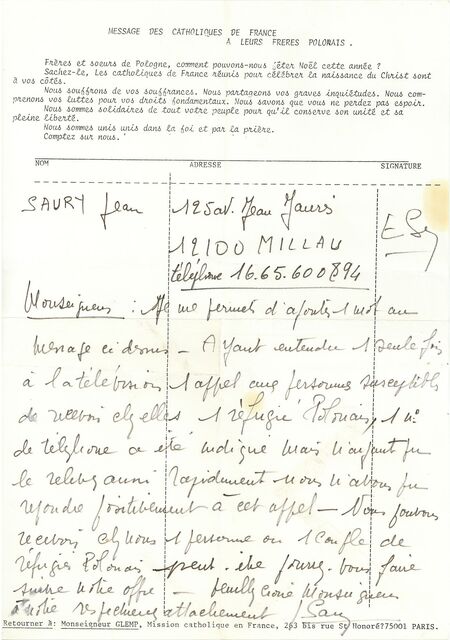 MESSAGE DES CATHOLIQUES DE FRANCE
A LEURS FRERES POLONAIS.
Frères et soeurs de Pologne, comment pouvons-nous fêter Noël cette année ?
Sachez-le, Les catholiques de France réunis pour célébrer la naissance du Christ sont
à vos côtés.
Nous souffrons de vos souffrances. Nous partageons vos graves inquiétudes. Nous com-
prenons vos luttes pour vos droits fondamentaux. Nous savons que vous ne perdez pas espoir.
Nous sommes solidaires de tout votre peuple pour qu'il conserve son unité et sa
pleine liberté.
Nous sommes unis unis dans la foi et par la prière.
Comptez sur nous.
NOM ADRESSE SIGNATURE
SAURY Jean 125 av. Jean Jaurès
12100 MILLAU
téléphone 16.65.600894
Monseigneur : Je me permets d'ajouter 1 mot au
message ci dessus - Ayant entendu 1 seule fois
à la télévision 1 appel aux personnes susceptibles
de recevoir chez elles 1 réfugié Polonais, 1 n°
de téléphone a été indiqué mais n'ayant pu
le relever aussi rapidement nous n'avons pu
répondre positivement à cet appel - Nous pouvons
recevoir chez nous 1 personne ou 1 couple de
réfugiés Polonais - peut être pourrez-vous faire
suivre notre offre - Veuillez croire Monseigneur
à notre respectueux attachement
Retourner à: Monseigneur GLEMP, Mission catholique en France, 263 bis rue St Honoré 75001 PARIS.